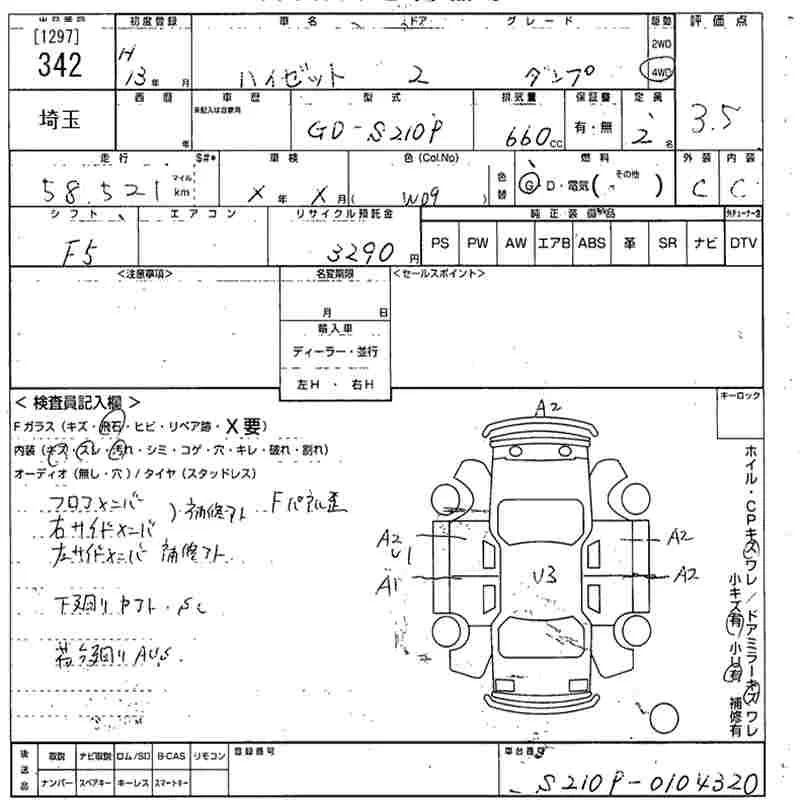 出品番号 初度登録 車名 ドア グレード 駆動 評価点
[1297]
342
H
13年 月
ハイゼット 2 ダンプ
2WD
4WD
3.5
埼玉
西暦 車歴 型式 排気量 保証書 定員
未記入は自家用
年
GD-S210P 660cc 有・無 2名
走行 S#* 車検 色(Col.No) 色替 燃料 外装 内装
58,521 マイル km X年 X月( W09 ) G・D・電気( その他 ) C C
シフト エアコン リサイクル預託金 純正装備品
F5 3290円 PS PW AW エアB ABS 革 SR ナビ DTV
<注意事項> 名変期限 <セールスポイント>
月 日
輸入車
ディーラー・並行
左H・右H
<検査員記入欄> キーロック
Fガラス(キズ・飛石・ヒビ・リペア跡・X要)
内装(キズ・スレ・汚れ・シミ・コゲ・穴・キレ・破れ・割れ)
オーディオ(無し・穴)/タイヤ(スタッドレス)
フロアメンバー
右サイドメンバ )補修アト Fパネル歪
左サイドメンバ 補修アト
下廻り サフト・SC
荷台廻り AUS.
A2
A2
U1
A1
U3
A2
A2
ホイル・CPキズワレ/ドアミラーキズワレ
小キズ有 小U有 補修有
後送品 取説 ナビ取説 ロム/SD B-CAS リモコン 登録番号 車台番号
ナンバー スペアキー キーレス スマートキー
S210P-0104320